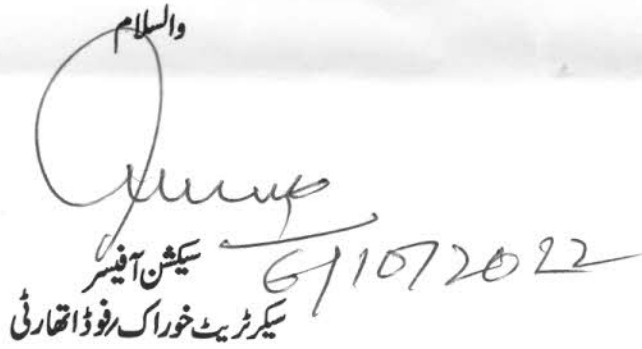 والسلام
6/10/2022
سیکشن آفیسر
سیکرٹریٹ خوراک/فوڈ اتھارٹی